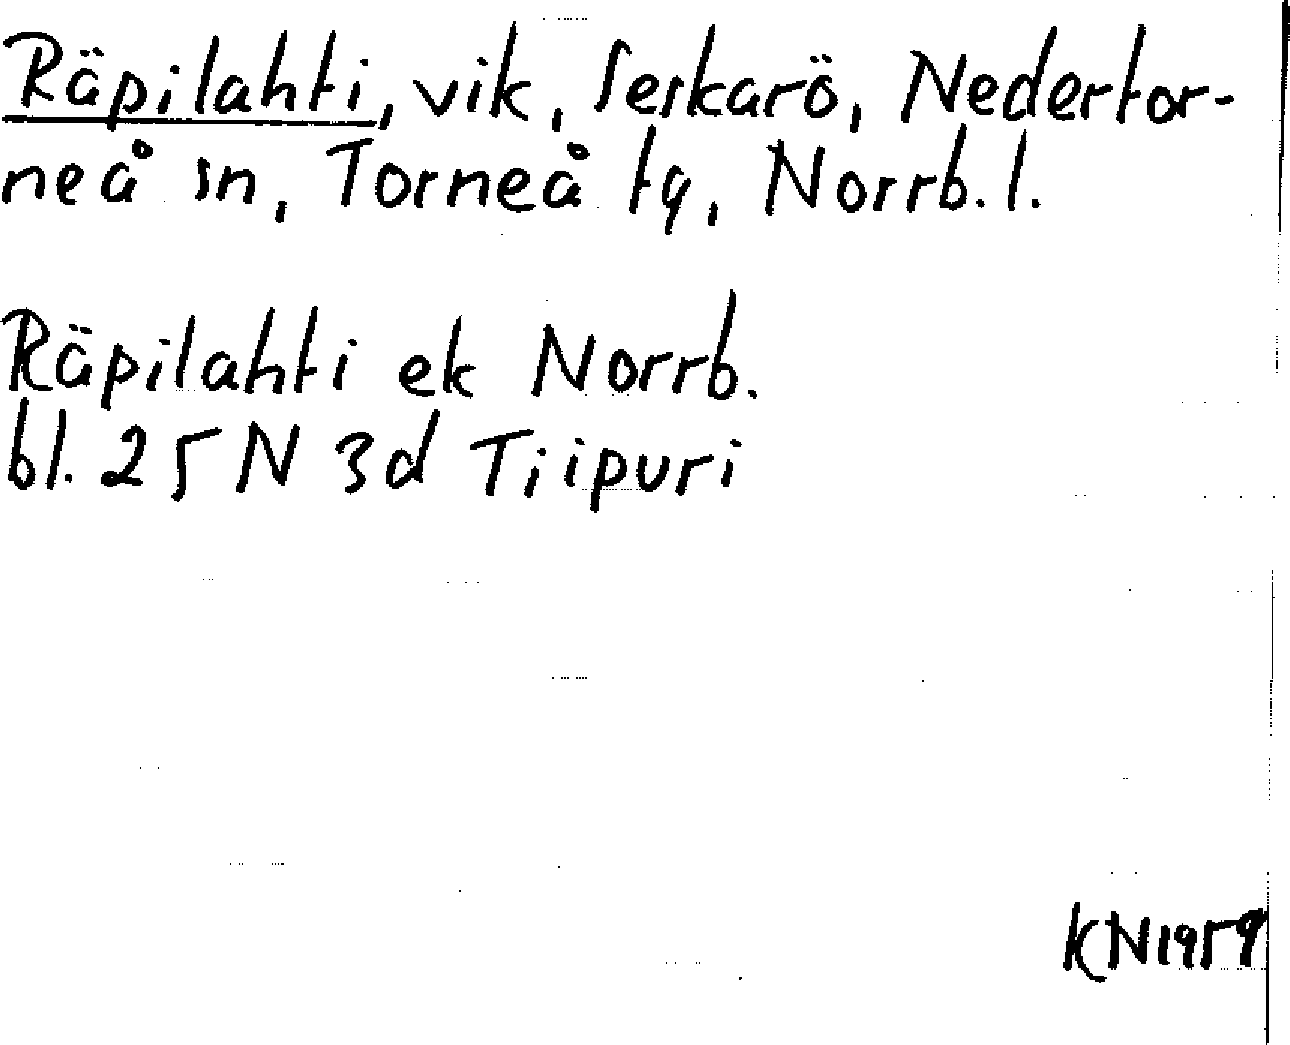 Räpilahti, vik, Seskarö, Nedertor-
neå sn, Torneå tg, Norrb. l.
Räpilahti ek Norrb.
bl. 25 N 3d Tiipuri
KN1959